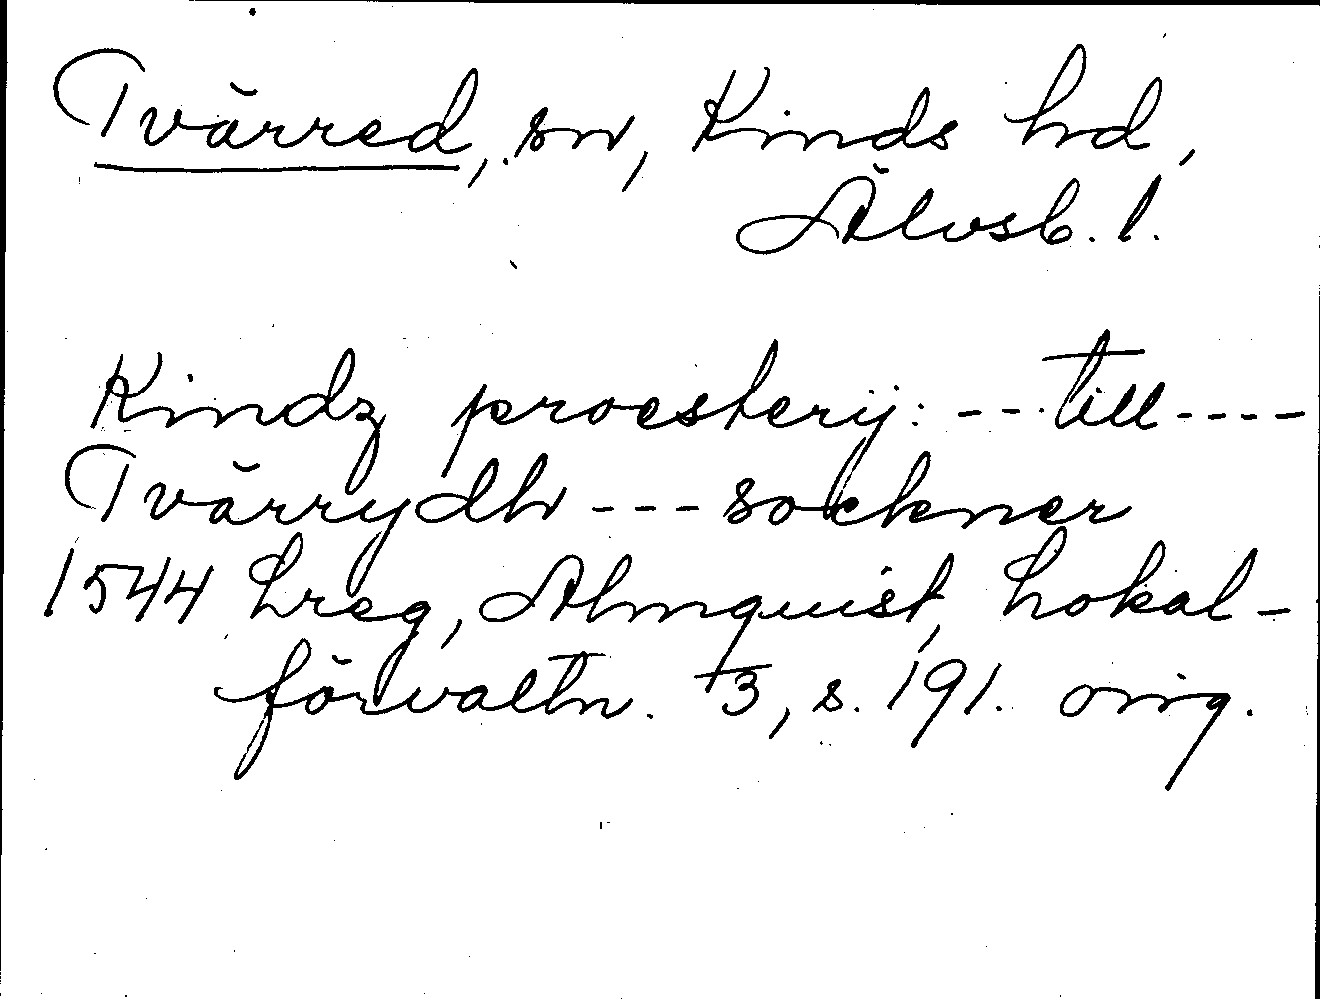 Tvärred, sn, Kinds hd,
Älvsb. l.
Kindz proesterij: --- till ----
Tvärrydh --- sockner
1544 Lreg, Almquist, Lokal-
förvaltn. 3, s. 191. orig.